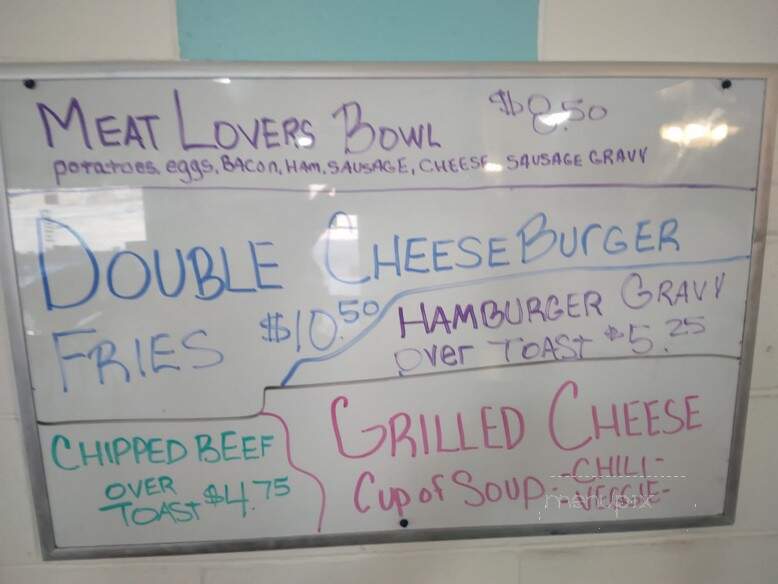 MEAT LOVERS BOWL $8.50
potatoes, eggs, BACON, HAM, SAUSAGE, CHEESE, SAUSAGE GRAVY
DOUBLE CHEESE BURGER
FRIES $10.50
HAMBURGER GRAVY
over TOAST $5.25
CHIPPED BEEF
OVER
TOAST $4.75
GRILLED CHEESE
Cup of SOUP -CHILI-
-VEGGIE-
menupix